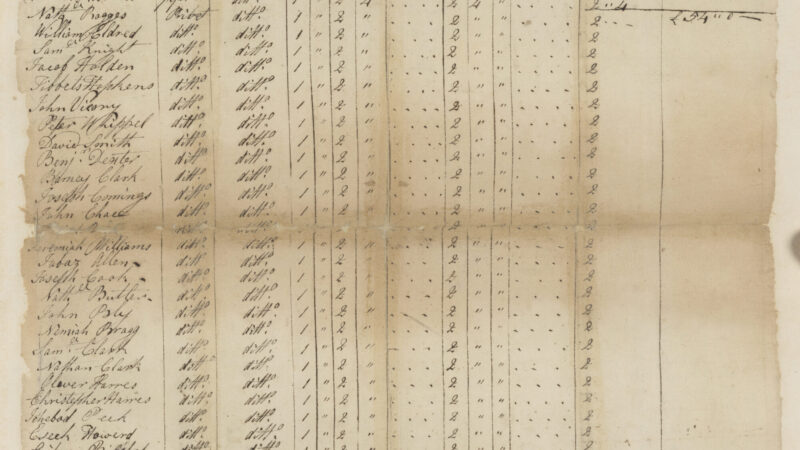 Nath.ll Bragges Privet ditt.o 1 " 2 4 2 4 2 " 4
William Eldred ditt.o ditt.o 1 " 2 " 2 " " 2 £54 " 0 —
Sam.ll Knight ditt.o ditt.o 1 " 2 " 2 " " 2
Jacob Holden ditt.o ditt.o 1 " 2 " 2 " " 2
Tibbels Hopkins ditt.o ditt.o 1 " 2 " 2 " " 2
John Vicory ditt.o ditt.o 1 " 2 " 2 " " 2
Peter Whippel ditt.o ditt.o 1 " 2 " 2 " " 2
David Smith ditt.o ditt.o 1 " 2 " 2 " " 2
Benj.n Dexter ditt.o ditt.o 1 " 2 " 2 " " 2
Barney Clark ditt.o ditt.o 1 " 2 " 2 " " 2
Joseph Comings ditt.o ditt.o 1 " 2 " 2 " " 2
John Chace ditt.o ditt.o 1 " 2 " 2 " " 2
Jeremiah Williams ditt.o ditt.o 1 " 2 " 2 " " 2
Jabaz Allen ditt.o ditt.o 1 " 2 " 2 " " 2
Joseph Cook ditt.o ditt.o 1 " 2 " 2 " " 2
Nath.ll Butler ditt.o ditt.o 1 " 2 " 2 " " 2
John ditt.o ditt.o 1 " 2 " 2 " " 2
Nemiah Bragg ditt.o ditt.o 1 " 2 " 2 " " 2
Sam.ll Clark ditt.o ditt.o 1 " 2 " 2 " " 2
Nathan Clark ditt.o ditt.o 1 " 2 " 2 " " 2
Olover Harres ditt.o ditt.o 1 " 2 " 2 " " 2
Christopher Harres ditt.o ditt.o 1 " 2 " 2 " " 2
Ichebod Peck ditt.o ditt.o 1 " 2 " 2 " " 2
Howerd ditt.o ditt.o 1 " 2 " 2 " " 2